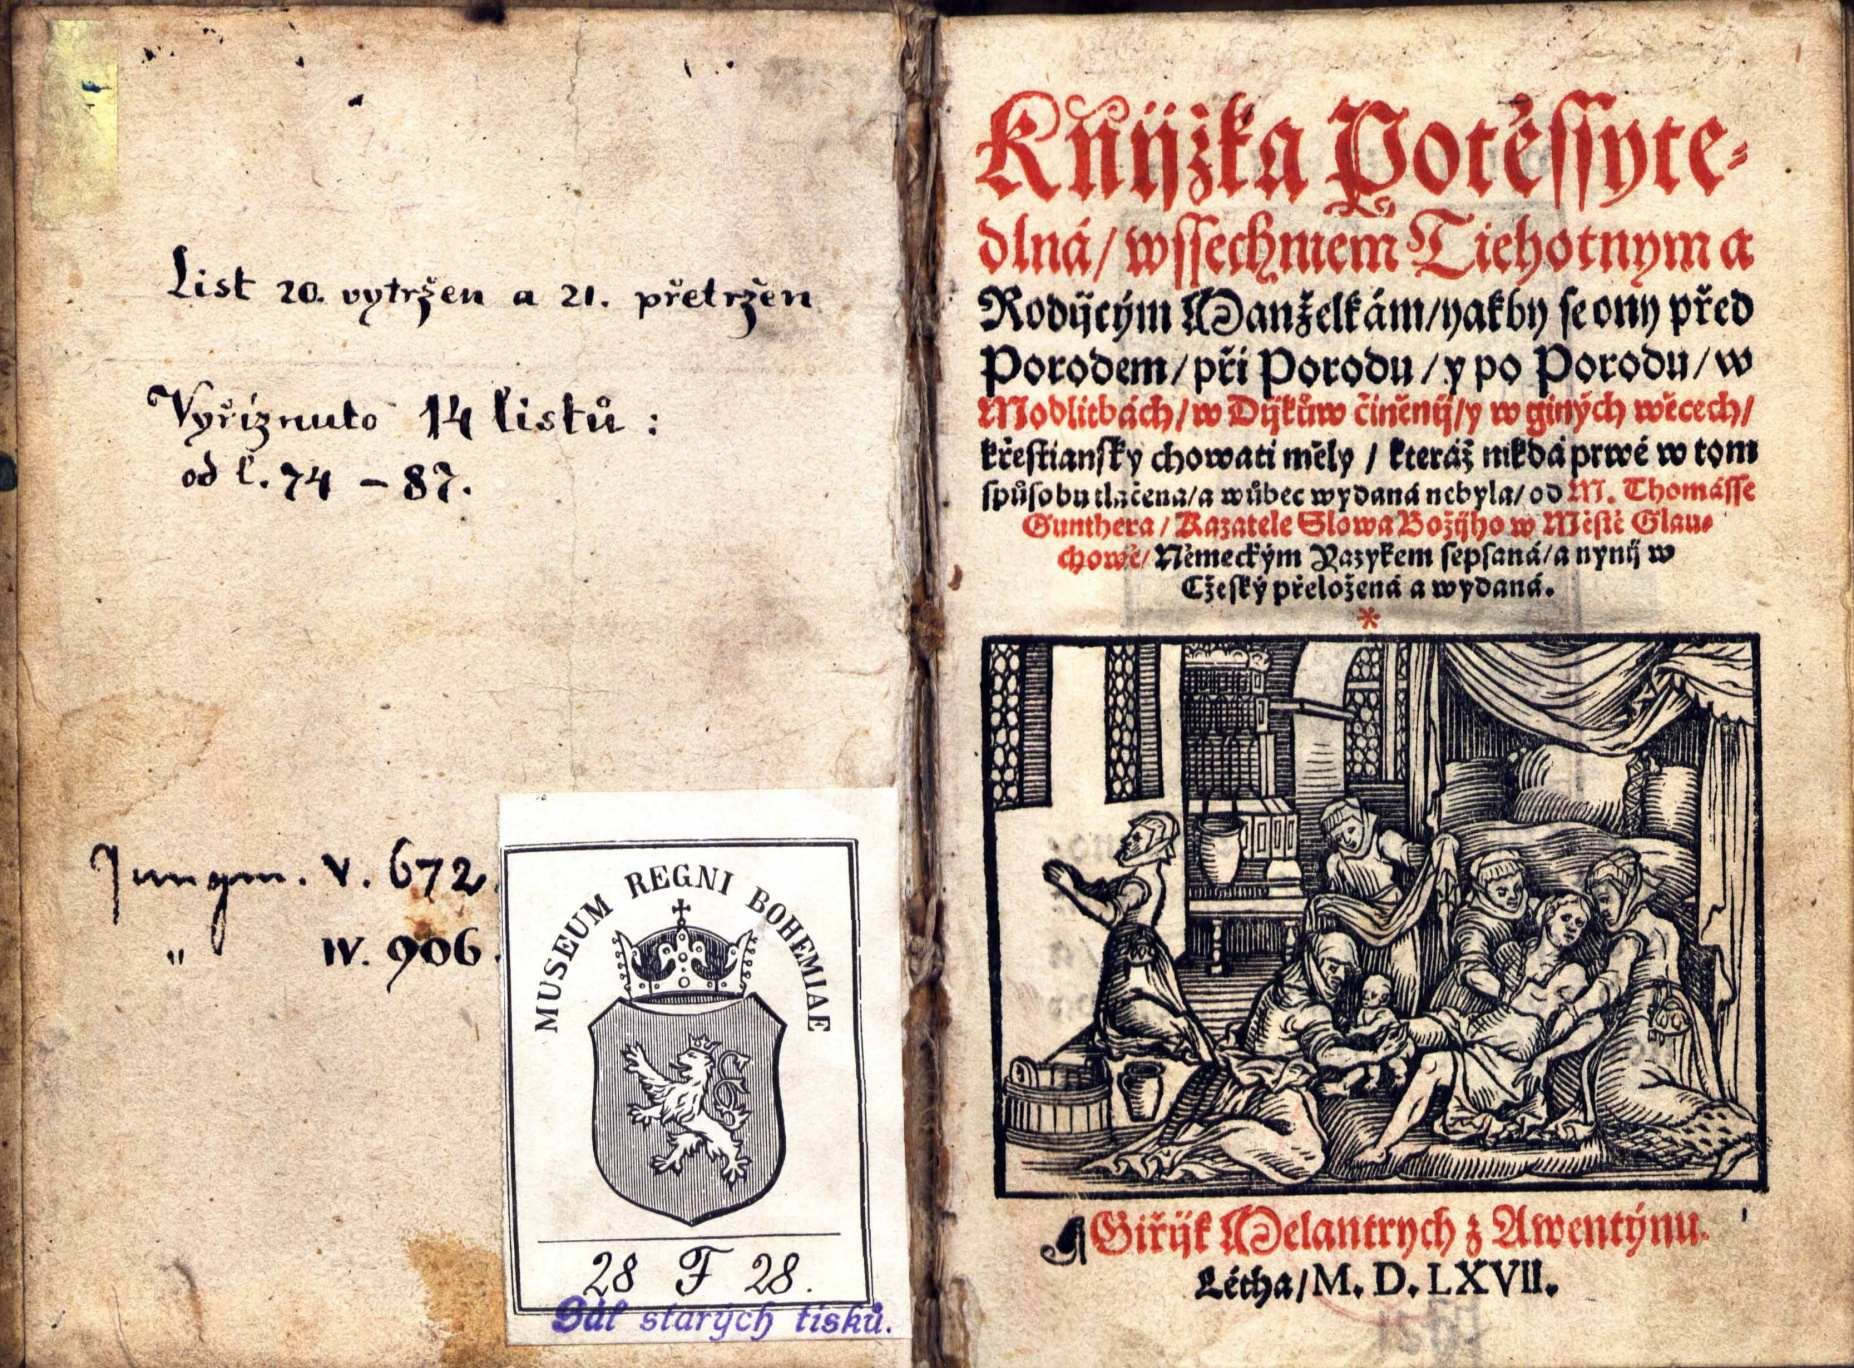 List 20. vytržen a 21. přetržen
Vyříznuto 14 listů :
od l. 74 – 87.
Jungm. V. 672.
" IV. 906.
MUSEUM REGNI BOHEMIAE
28 F 28.
Sál starých tisků.
Knijžka Potěssyte-
dlná/ wssechněm Tiehotnym a
Rodijcým Manželkám/ yakby se ony před
Porodem/ při Porodu/ y po Porodu/ w
Modlitbách/ w Dijkůw činěnij/ y w giných wěcech/
křestiansky chowati měly/ kteráž nikdá prwé w tom
spůsobu tlačena/ a wůbec wydaná nebyla/ od M. Thomásse
Gunthera/ Kazatele Slowa Božijho w Městě Glau-
chowě/ Německým Yazykem sepsaná/ a nynij w
Cžeský přeložená a wydaná.
*
Giřijk Melantrych z Awentýnu.
Létha/ M. D. LXVII.